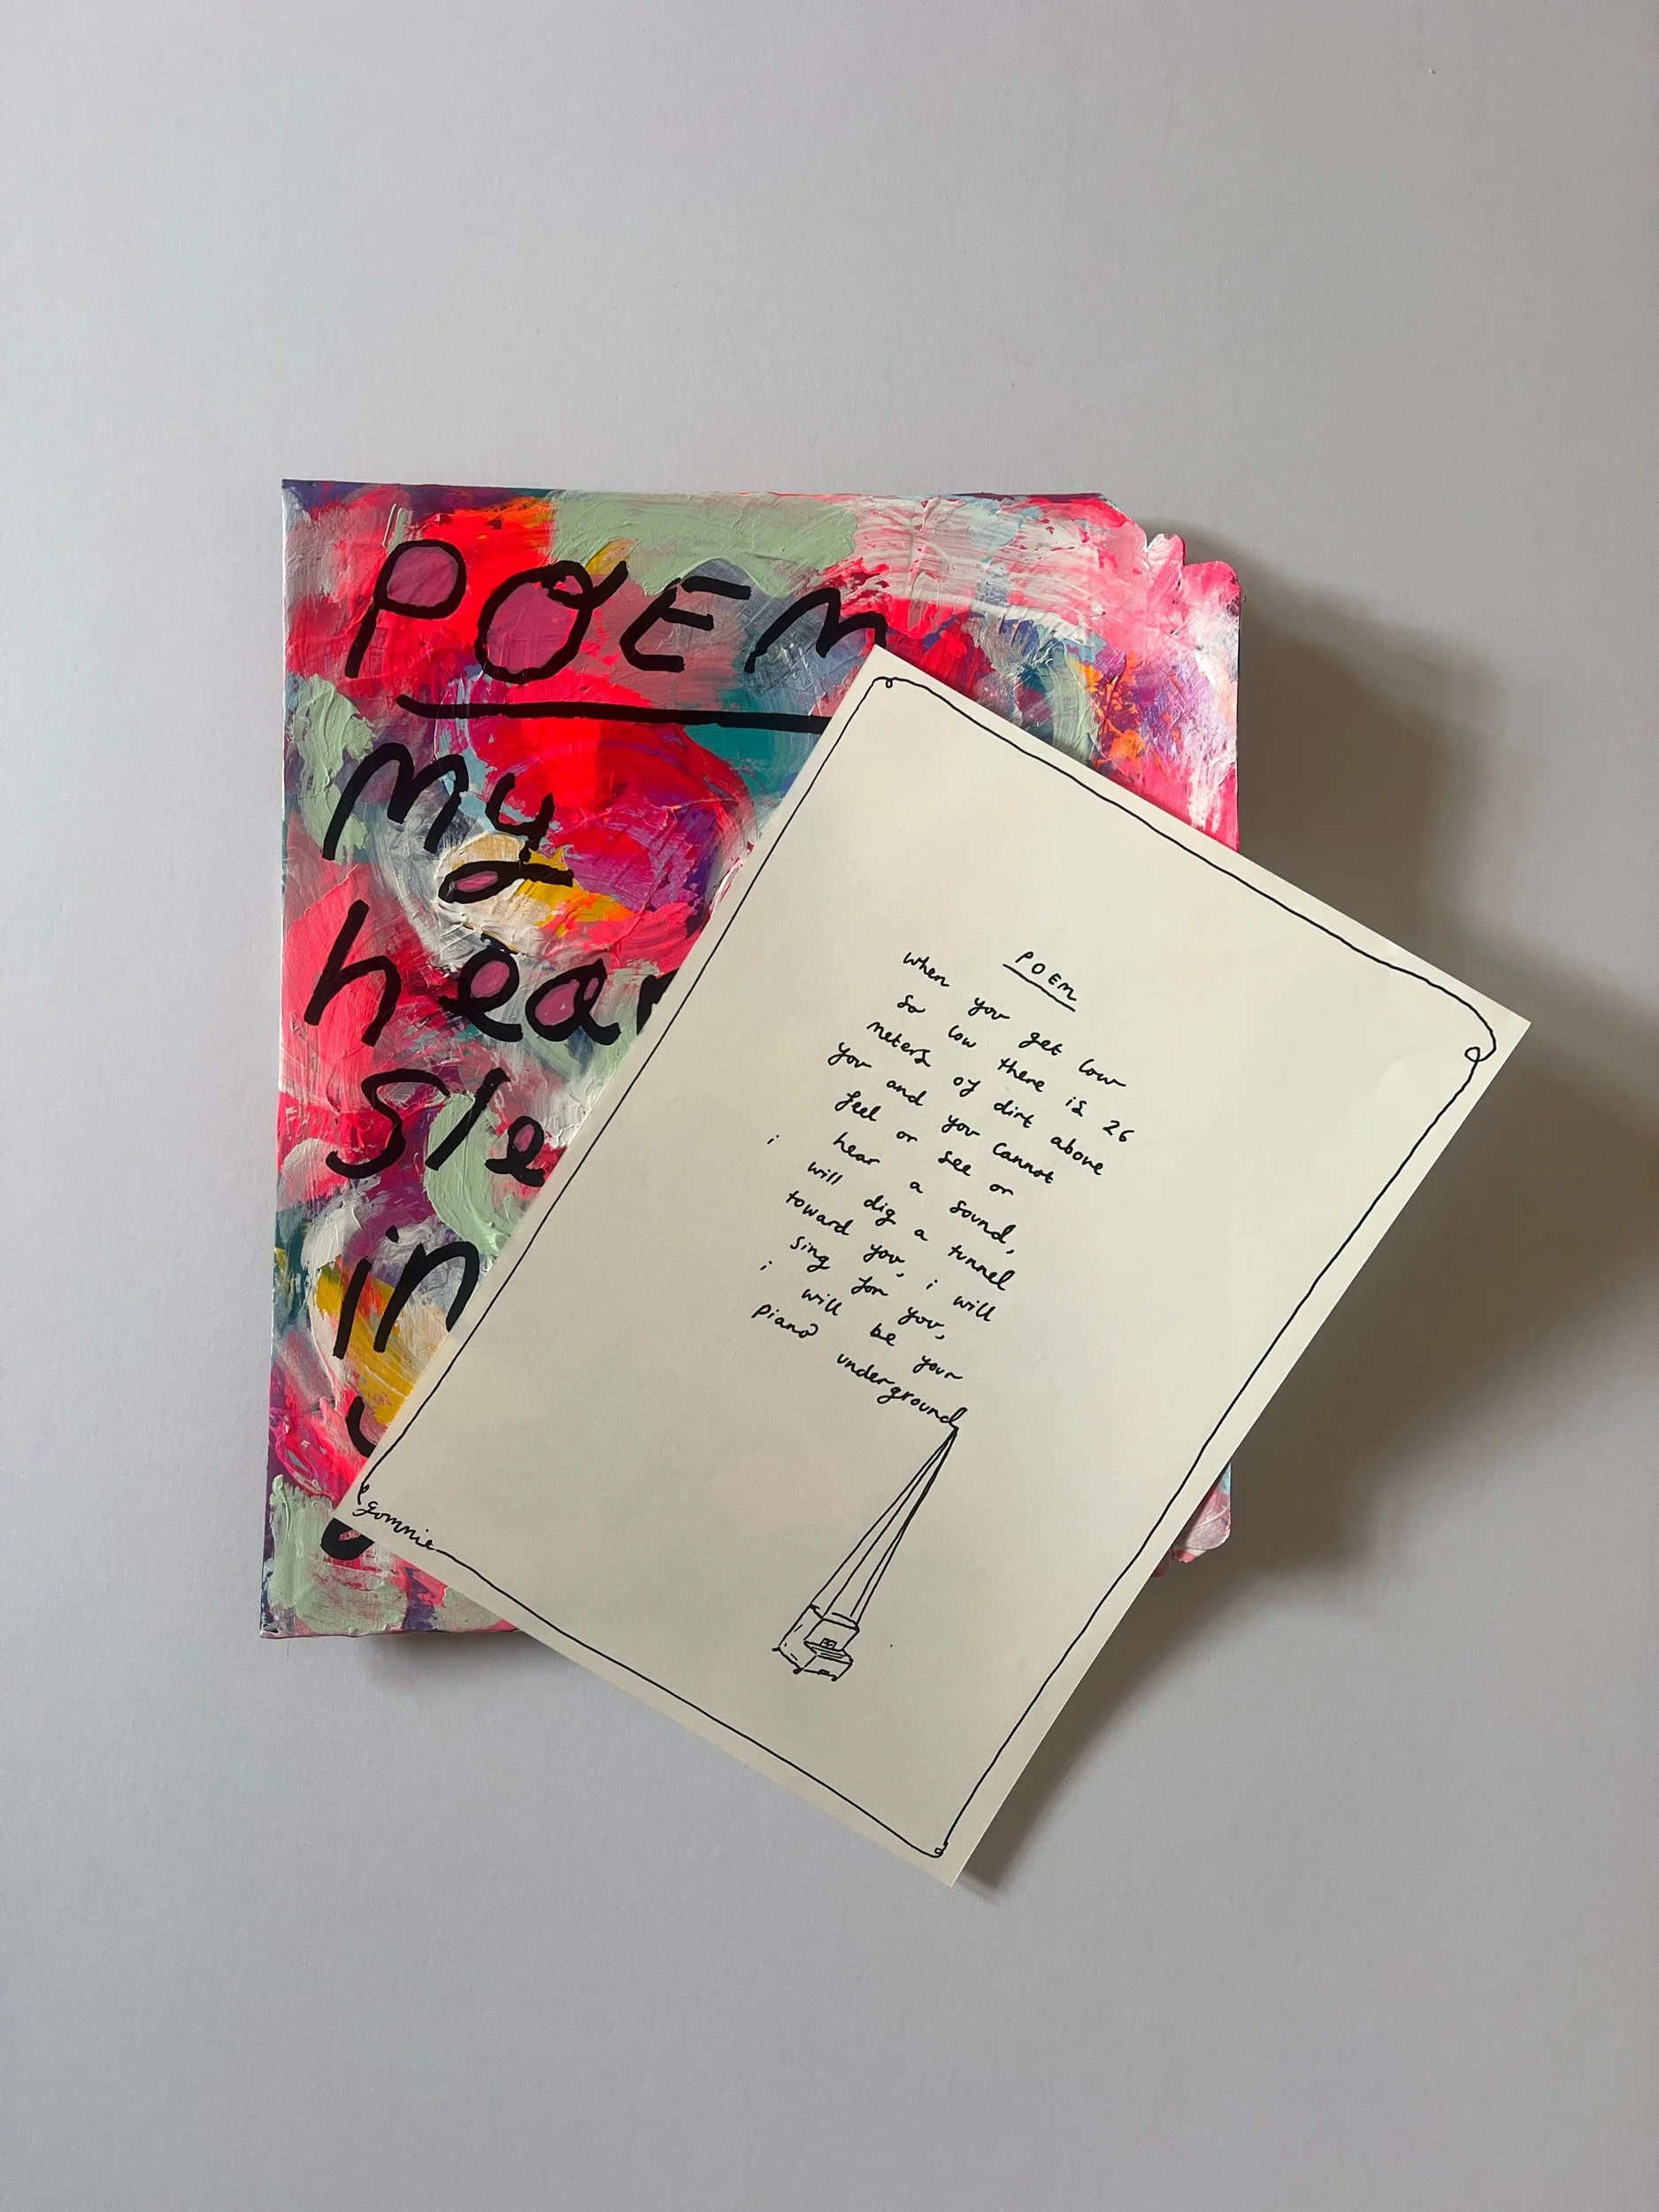 POEM
my
hear
sle
in
POEM
when you get low
so low there is 26
meters of dirt above
you and you cannot
feel or see or
hear a sound,
i will dig a tunnel
toward you, i will
sing for you,
i will be your
piano underground
gomnie